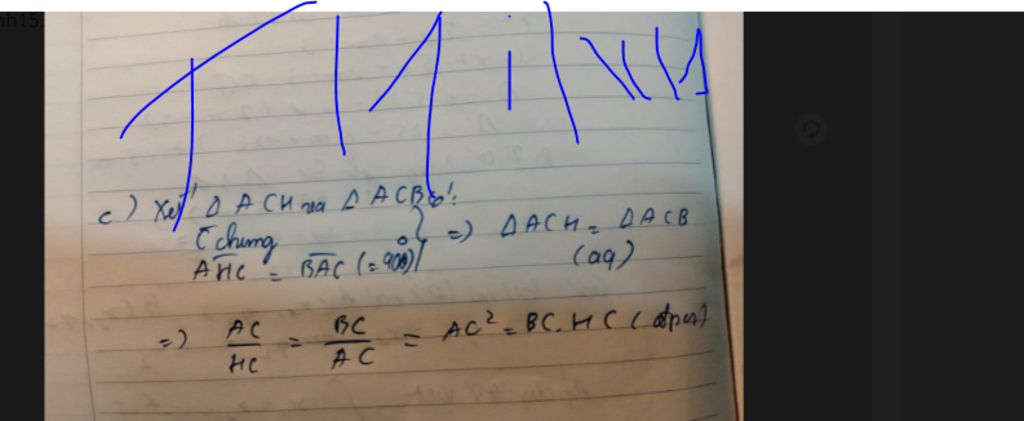 c) Xét Δ ACH và Δ ACB có:
C chung
AHC = BAC (= 90°) } => Δ ACH = Δ ACB
(gg)
=> AC/HC = BC/AC = AC² = BC. HC (đpcm)